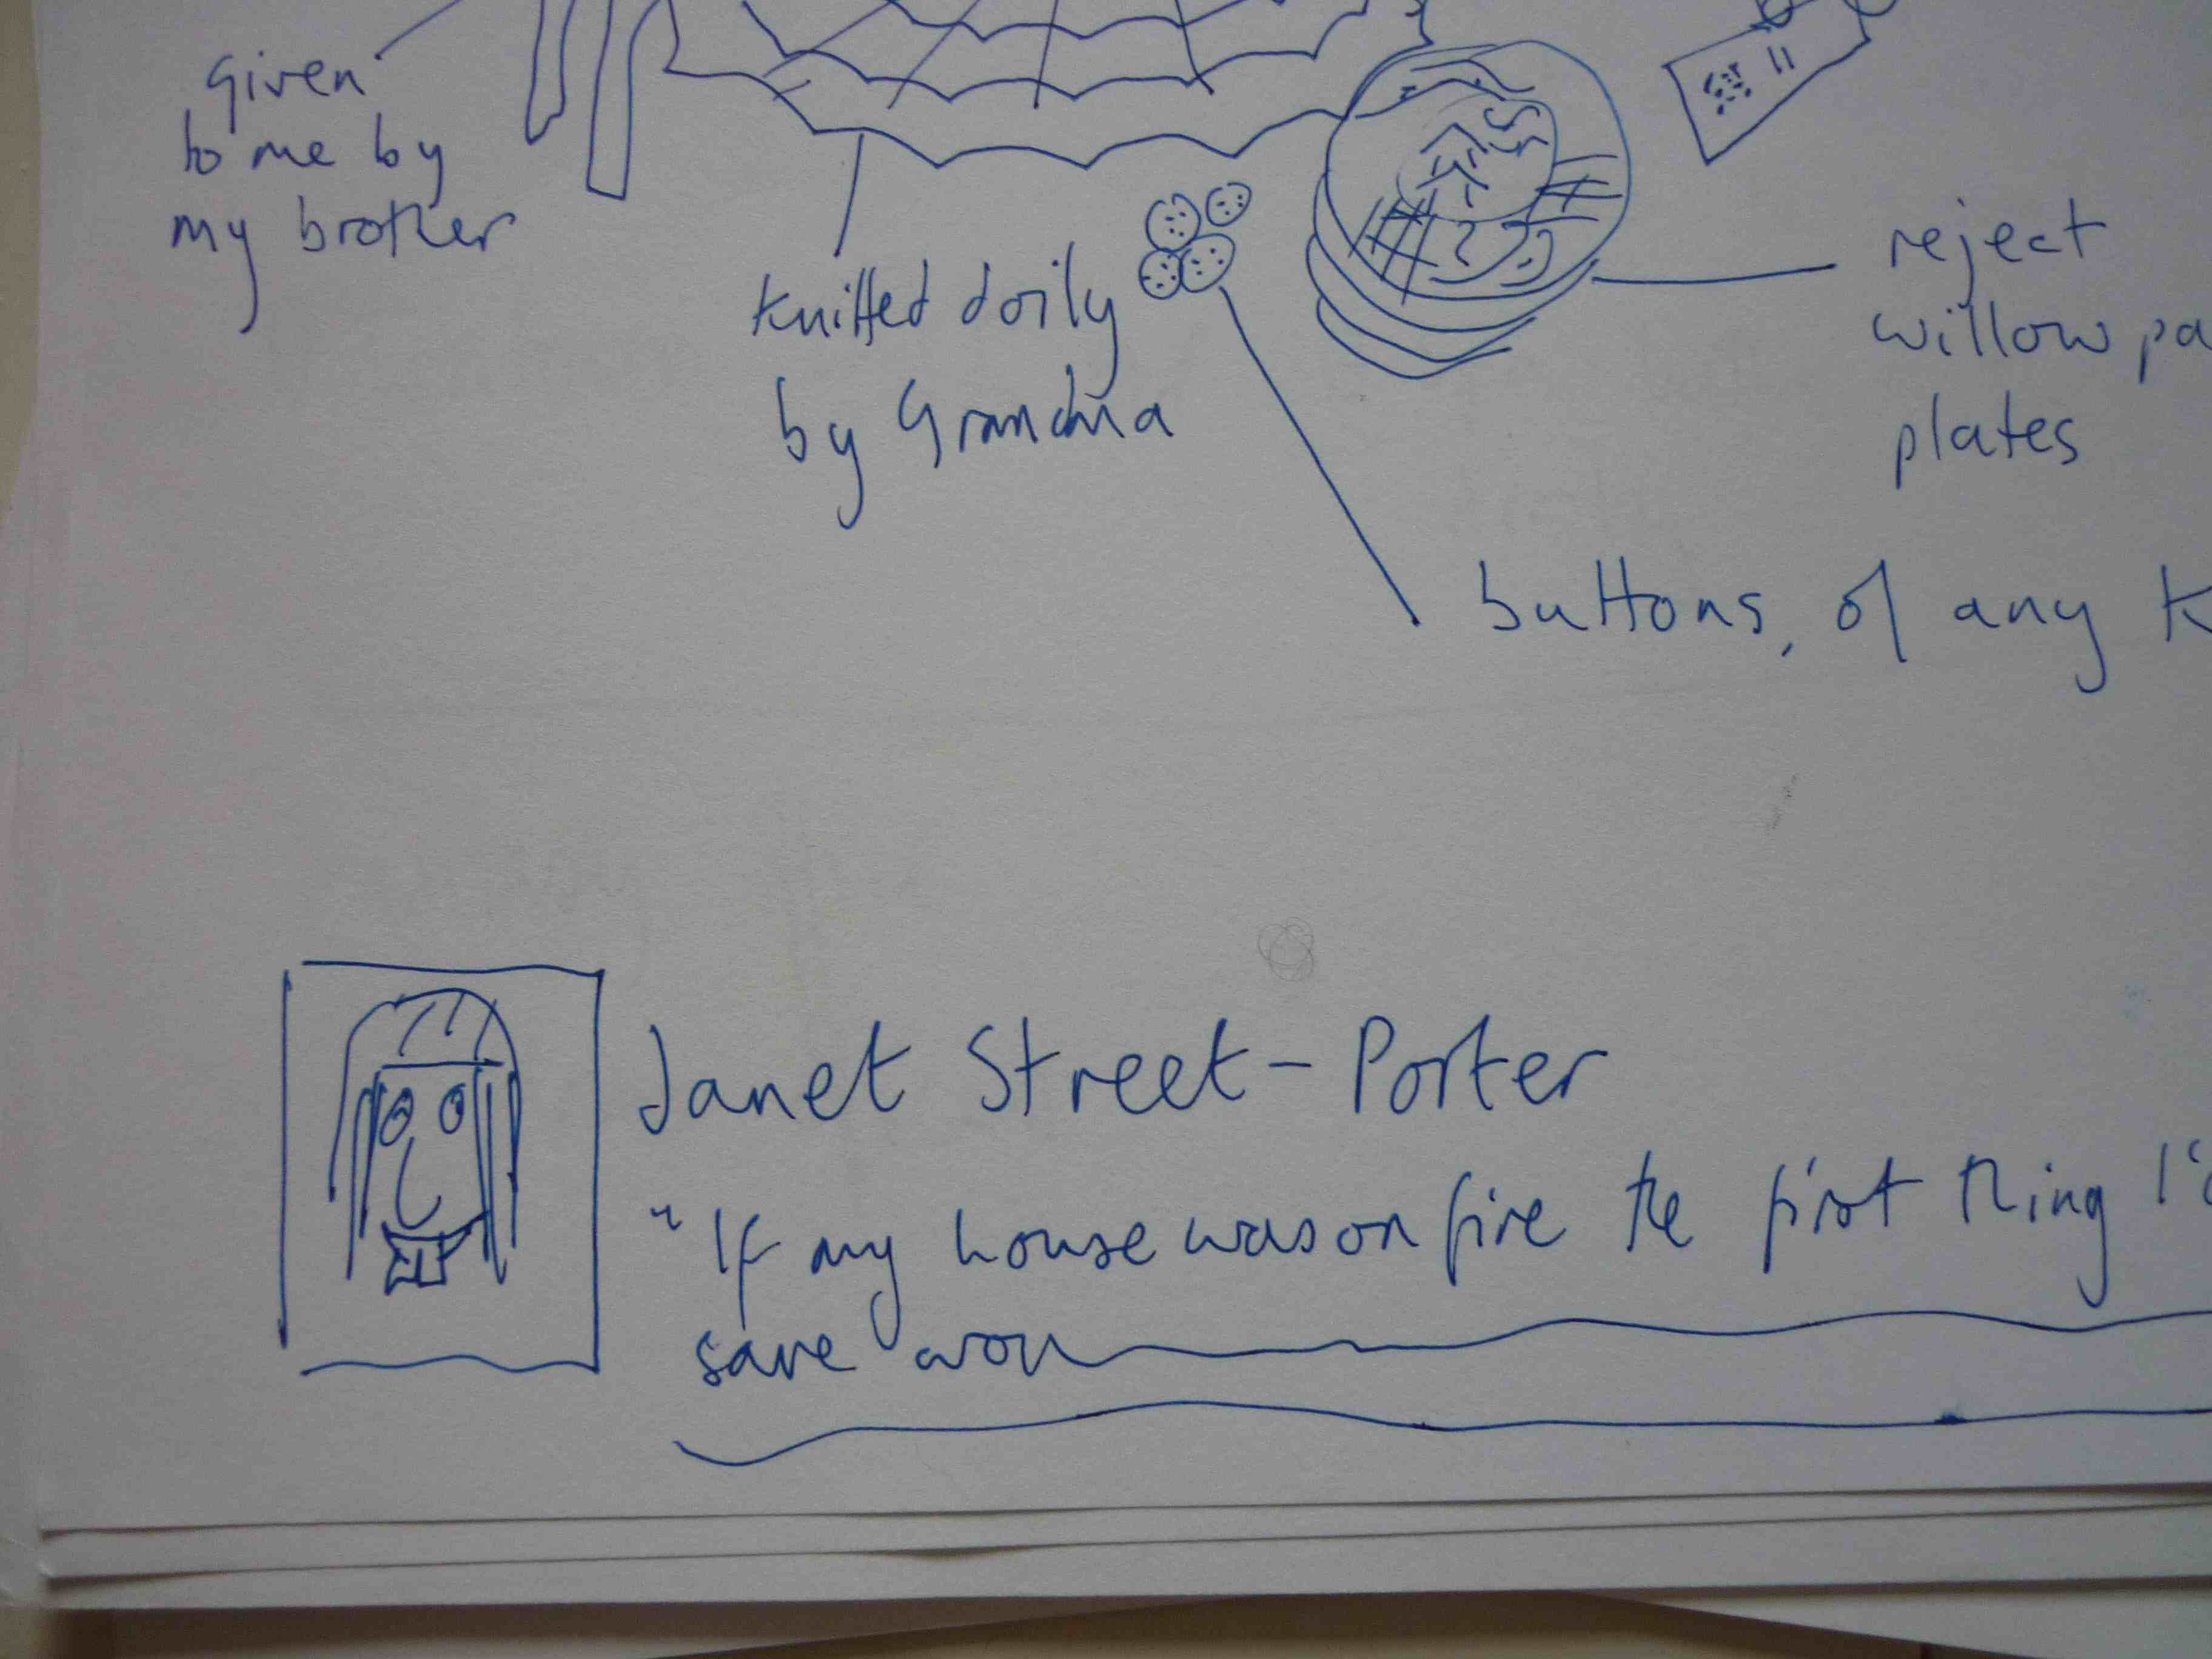 given
to me by
my brother
knitted doily
by Grandma
reject
willow pa
plates
buttons, of any k
Janet Street-Porter
"If my house was on fire the first thing I'd
save wou